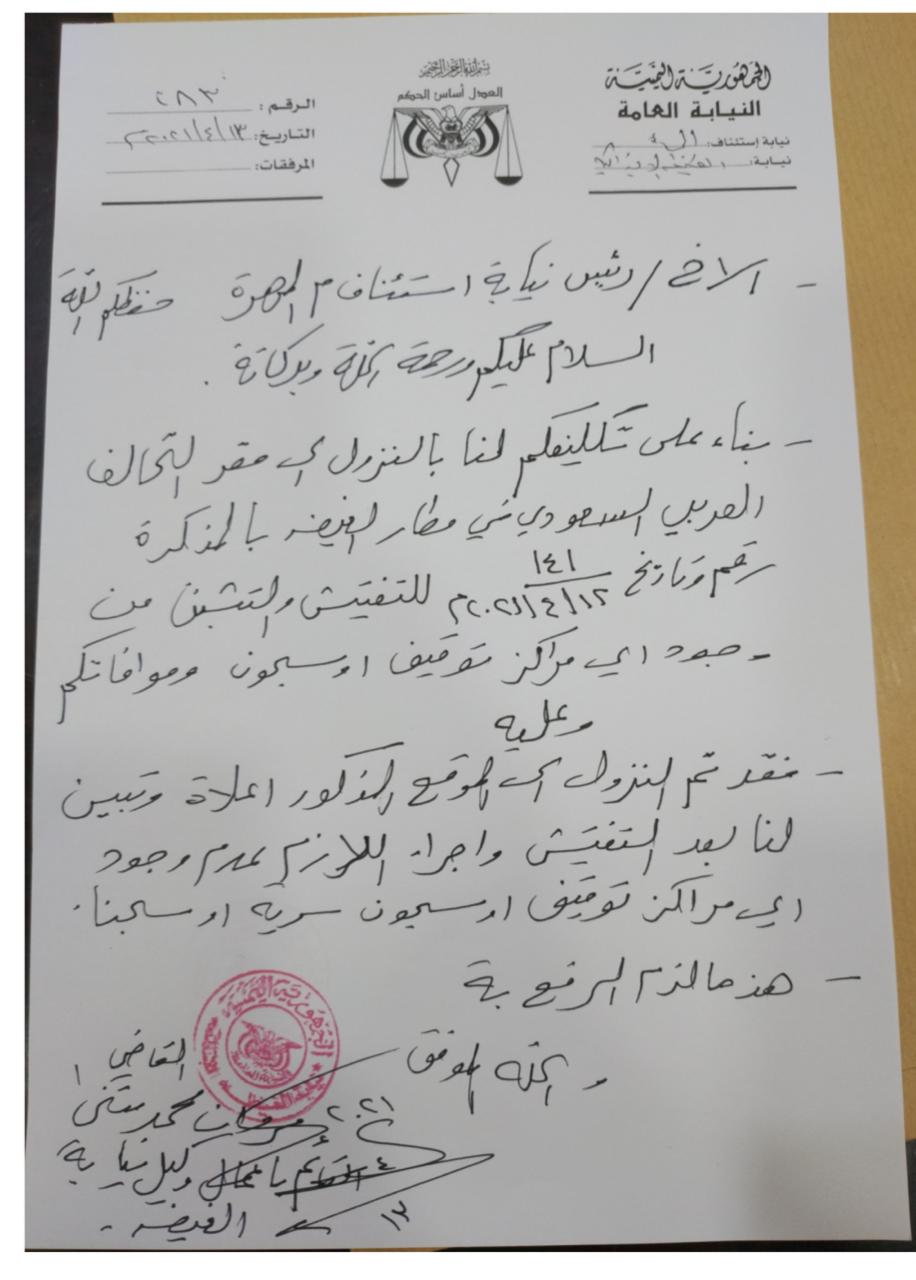 الجمهورية اليمنية
النيابة العامة
نيابة إستئناف:
نيابة:
بسم الله الرحمن الرحيم
العدل أساس الحكم
الرقم: ٢٨٣
التاريخ: ١٣/٤/٢٠٢١م
المرفقات:
- الاخ/ رئيس نيابة استئناف م المهرة حفظكم الله
السلام عليكم ورحمة الله وبركاتة.
- بناء على تكليفكم لنا بالنزول الى مقر التحالف
العربي السعودي في مطار الغيضه بالمذكرة
رقم وتاريخ ١٤١ ١٢/٤/٢٠٢١م للتفتيش والتثبت من
وجود اي مراكز توقيف او سجون وموافاتكم
وعليه
- فقد تم النزول الى الموقع المذكور اعلاة وتبين
لنا بعد التفتيش واجراء اللازم عدم وجود
اي مراكز توقيف او سجون سرية او سجناء.
- هذ مالزم الرفع بة
والله الموفق
القاضي
محمد مثنى
القائم باعمال وكيل نيابة
الغيضه
٢٠٢١
٤
١٣
الجمهورية اليمنية